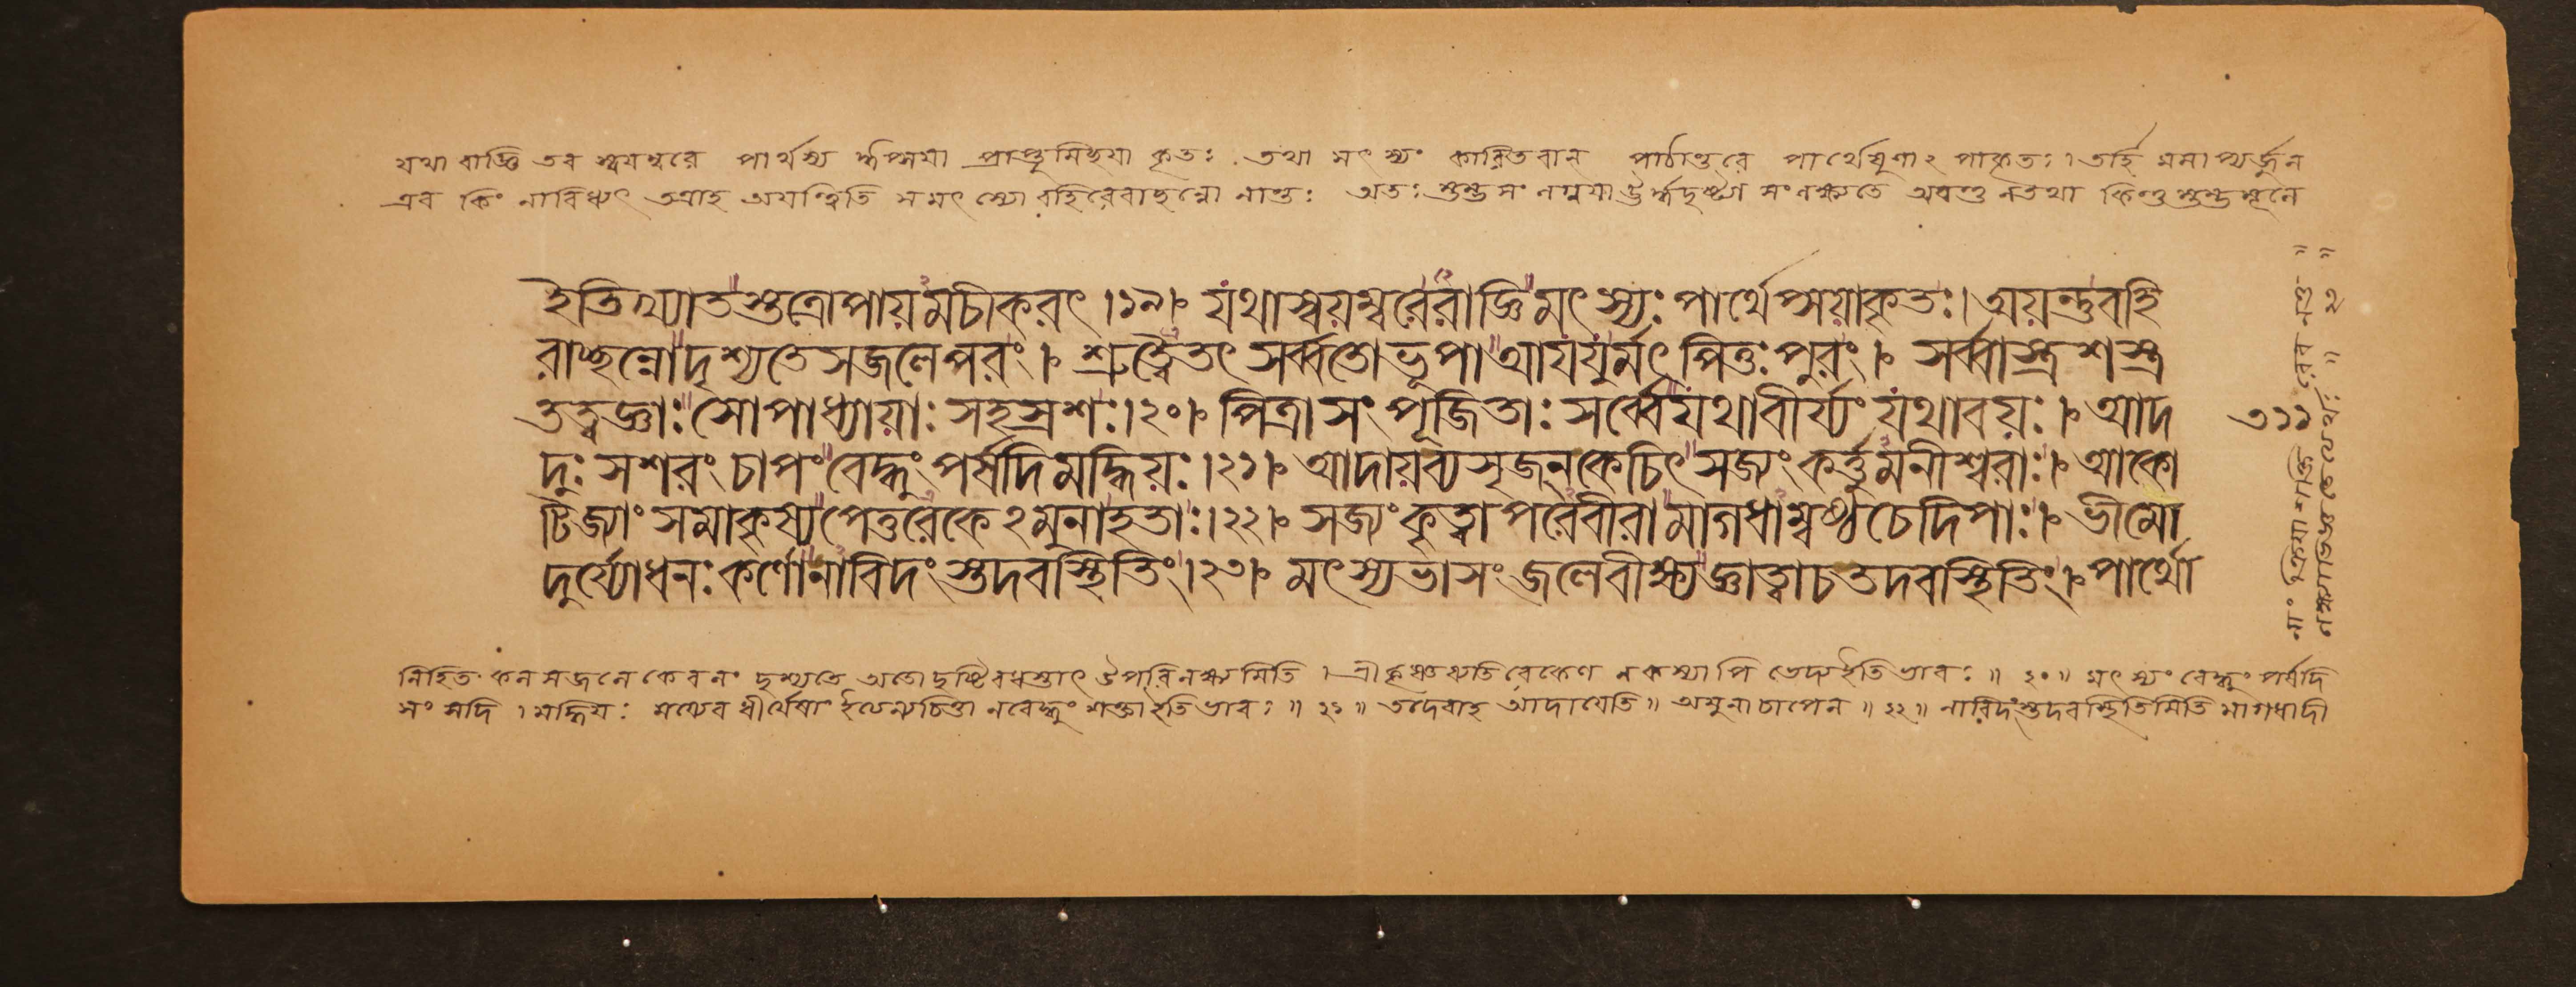 যথা রাজ্ঞি তব স্বয়ম্বরে পার্থস্য ঈপ্সয়া প্রাপ্তুমিচ্ছয়া কৃতঃ । তথা মৎস্যং কারিতবান পাঠান্তরে পার্থেষুণা২ পাকৃতঃ । তর্হি মমাপ্যর্জ্জুন
এব কিং নাবিধ্যৎ তত্রাহ অয়ন্ত্বিতি স মৎস্যো বহিরেবাছন্নো নান্তঃ অতঃ স্তম্ভসংলগ্নয়া ঊর্দ্ধদৃষ্ট্যা সংলক্ষ্যতে অয়ন্তু ন তথা কিন্তু স্তম্ভমূলে
ইতিখ্যাতস্তত্রোপায়মচীকরৎ ।১৯। যথাস্বয়ম্বরেরাজ্ঞি মৎস্যঃ পার্থেপ্সয়াকৃতঃ। অয়ন্তুবহি
রাচ্ছন্নোদৃশ্যতেসজলেপরং । শ্রুত্বৈতৎ সর্ব্বতোভূপাআযযুর্মৎপিতুঃপুরং । সর্ব্বাস্ত্রশস্ত্র
তত্ত্বজ্ঞাঃসোপাধ্যায়াঃ সহস্রশঃ।২০। পিত্রাসংপূজিতাঃ সর্ব্বেযথাবীর্য্যং যথাবয়ঃ । আদ
দুঃ সশরং চাপং বেদ্ধুং পর্ষদিমদ্ধিয়ঃ।২১। আদায়ব্যসৃজন্কেচিৎ সজ্যং কর্ত্তুমনীশ্বরাঃ। আকো
টিজ্যাং সমাকৃষ্যপেতুরেকে২মুনাহতাঃ।২২। সজ্যংকৃত্বাপরেবীরামাগধাম্বষ্ঠচেদিপাঃ। ভীমো
দুর্য্যোধনঃকর্ণোনাবিদংস্তদবস্থিতিং।২৩। মৎস্যভাসংজলেবীক্ষ্যজ্ঞাত্বাচতদবস্থিতিং। পার্থো
নিহিত কলসজলে কেবলং দৃশ্যতে অতো দৃষ্টিরধস্তাৎ উপরি লক্ষ্যমিতি । শ্রীকৃষ্ণব্যতিরেকেণ ন কস্যাপি ভেদ্য ইতি ভাবঃ ॥ ২০ ॥ মৎস্যং বেদ্ধুং পর্ষদি
সংসদি । মদ্ধিয়ঃ ময্যেব ধীর্যেষাং ন বেদ্ধুং শক্তা ইতি ভাবঃ ॥ ২১ ॥ তদেবাহ আদায়েতি ॥ অমুনা চাপেন ॥ ২২ ॥ নাবিদংস্তদবস্থিতিমিতি মাগধাদী
৩১১